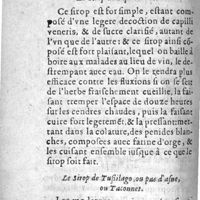 Ce sirop est fort simple, estant com-
posé d'vne legere decoction de capilli
veneris, & de sucre clarifié, autant de
l'vn que de l'autre: & ce sirop ainsi cõ-
posé est fort plaisant, lequel on baille à
boire aux malades au lieu de vin, le de-
strempant auec eau. On le rendra plus
efficace contre les fluxions si on se sert
de l'herbe fraischement cueillie, la fai-
sant tremper l'espace de douze heures
sur les cendres chaudes, puis la faisant
quelque peu bouillir, & la presser mettant-
dans la colature, des penides blan-
ches, composées auec farine d'orge, &
les cuisant ensemble iusques à ce que le
sirop soit fait.
Le Sirop de Tussilago, ou pas d'asne,
ou Taconnet.